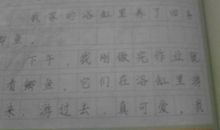 我家的浴缸里养了四条
鲫鱼。
下午，我刚做完作业就
看鲫鱼，它们在浴缸里游
来，游过去，真可爱，我